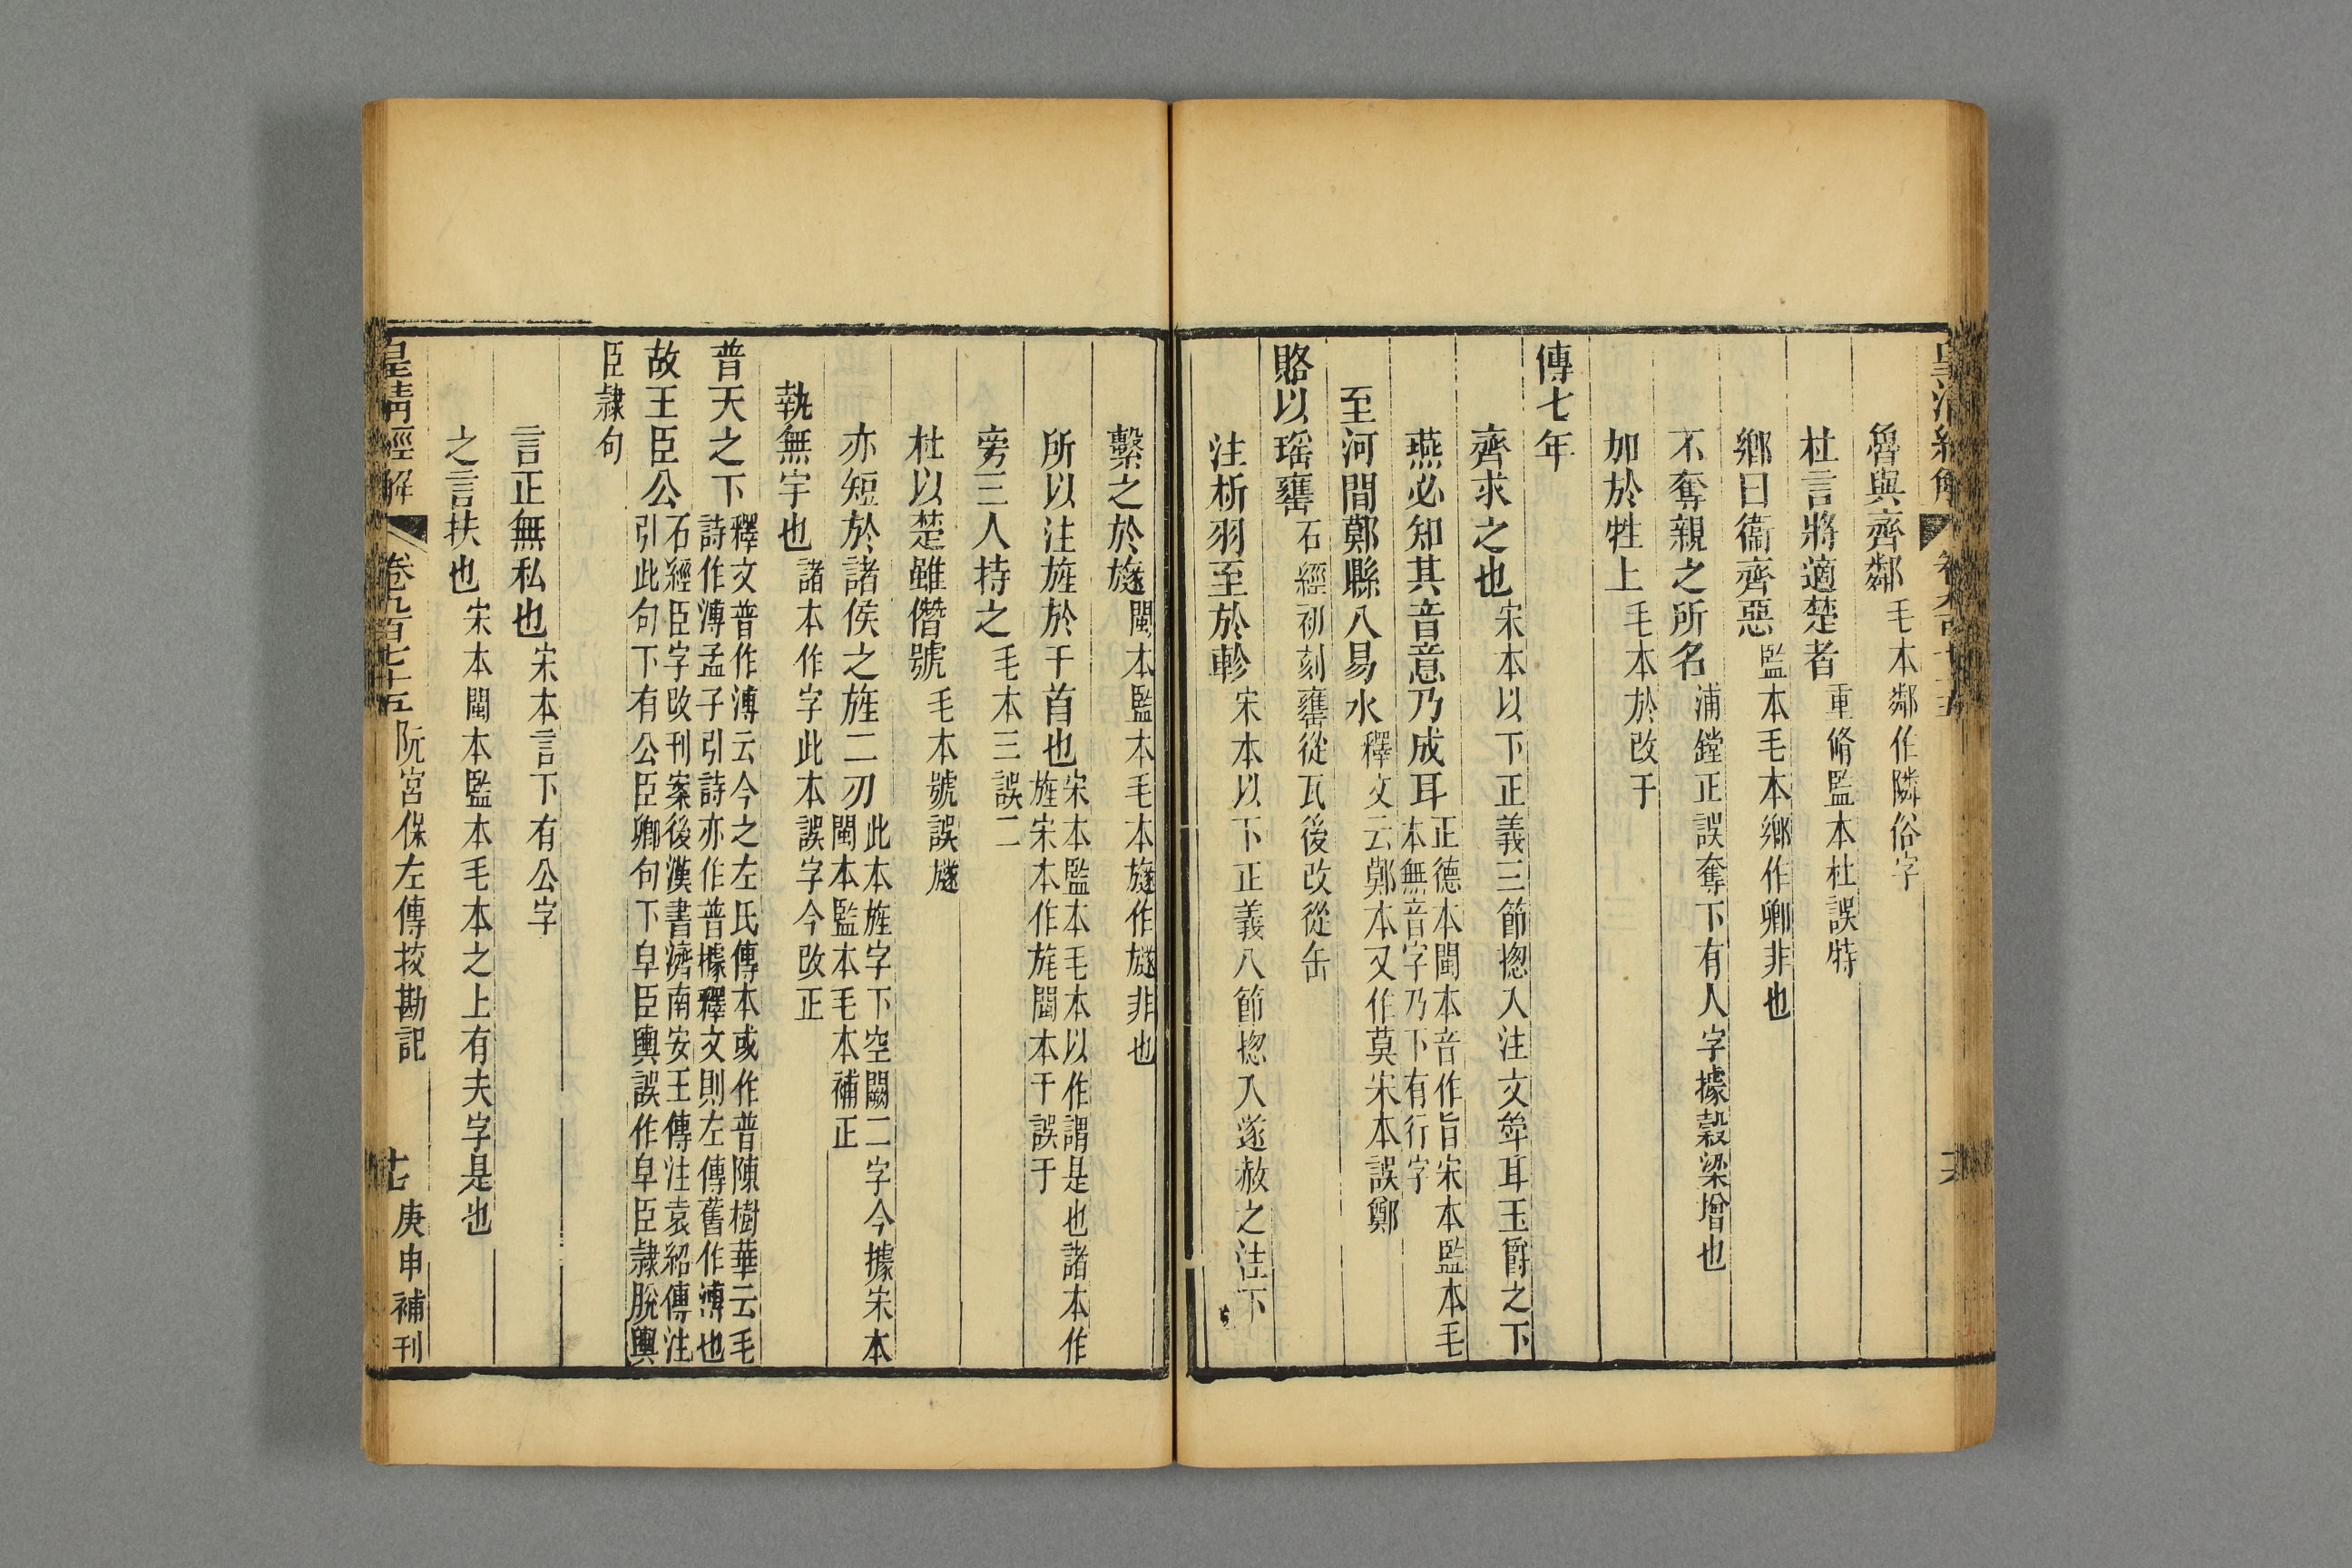 皇清經解 卷九百七十五 六
魯與齊鄰毛本鄰作隣俗字
杜言將適楚者重脩監本杜誤特
鄉曰衞齊惡監本毛本鄉作卿非也
不奪親之所名浦鏜正誤奪下有人字據穀梁增也
加於牲上毛本於改于
傳七年
齊求之也宋本以下正義三節揔入注文斝耳玉爵之下
燕必知其音意乃成耳正德本閩本音作旨宋本監本毛本無音字乃下有行字
至河間鄚縣入易水釋文云鄚本又作莫宋本誤鄭
賂以瑶罋石經初刻罋從瓦後改從缶
注析羽至於軫宋本以下正義八節揔入遂赦之注下
繫之於旞閩本監本毛本旞作旞非也
所以注旄於干首也宋本監本毛本以作謂是也諸本作旌宋本作旄閩本干誤于
旁三人持之毛本三誤二
杜以楚雖僭號毛本號誤旞
亦短於諸侯之旌二刃此本旌字下空闕二字今據宋本閩本監本毛本補正
執無宇也諸本作字此本誤字今改正
普天之下釋文普作溥云今之左氏傳本或作普陳樹華云毛詩作溥孟子引詩亦作普據釋文則左傳舊作溥也
故王臣公石經臣字改刊案後漢書濟南安王傳注袁紹傳注引此句下有公臣卿句下皁臣輿誤作皁臣隷脫輿
臣隷句
言正無私也宋本言下有公字
之言扶也宋本閩本監本毛本之上有夫字是也
皇清經解 卷九百七十五 阮宮保左傳挍勘記 七 庚申補刊